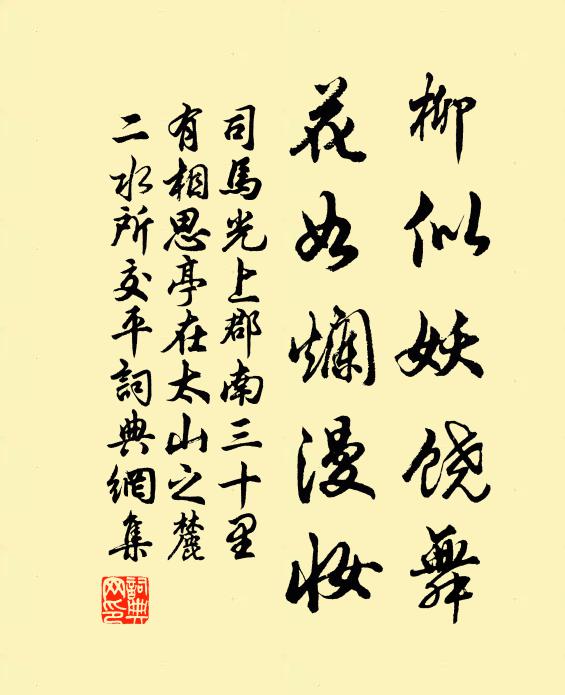 柳似妖饶舞
花如爛漫妝
司馬光上郡南三十里
有相思亭在太山之麓
二水所交平詞典網集
詞典